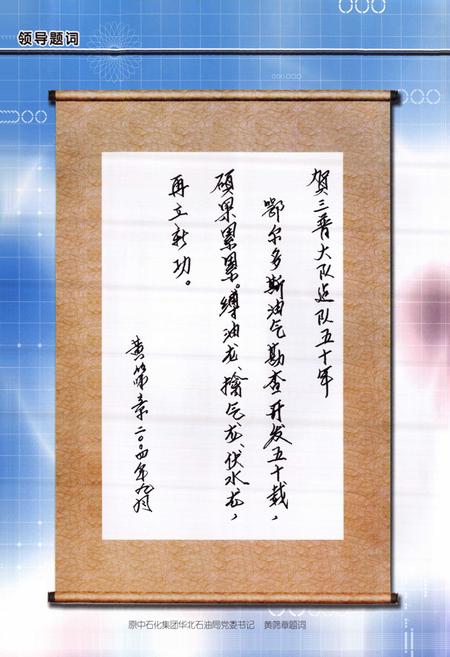 领导题词
贺三普大队建队五十年
鄂尔多斯油气勘查开发五十载，
硕果累累。缚油龙、擒气龙、伏水龙，
再立新功。
黄筛章二〇〇四年九月
原中石化集团华北石油局党委书记 黄筛章题词